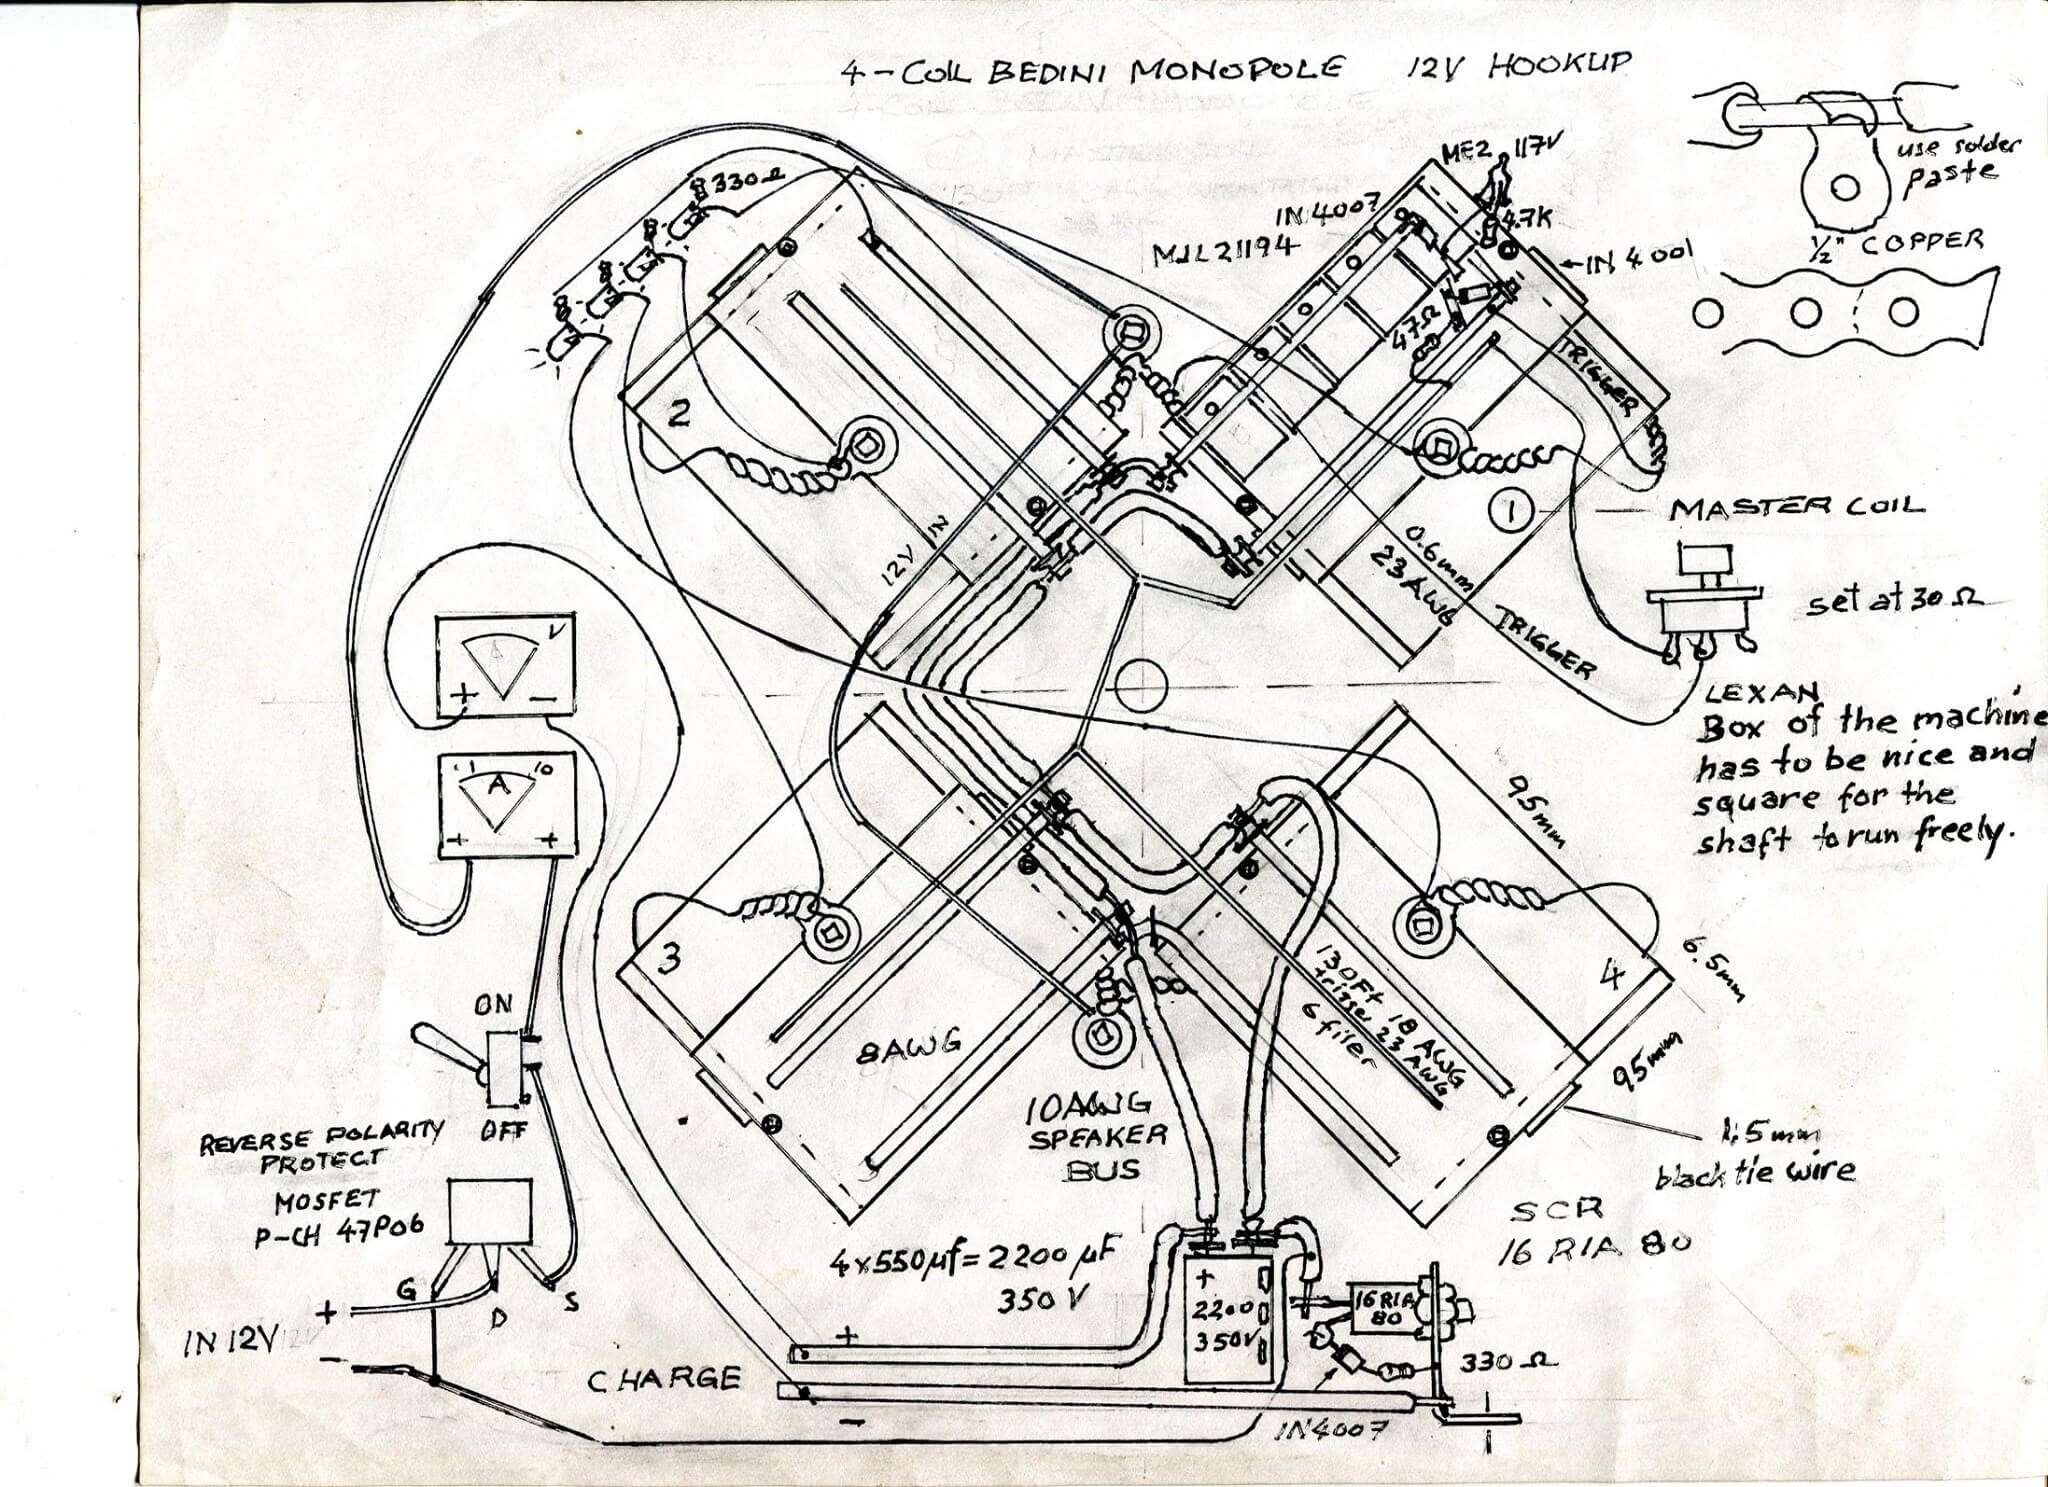 4-COIL BEDINI MONOPOLE 12V HOOKUP
use solder
paste
1/2" COPPER
ME2 117V
IN4007
MJL21194
4.7K
IN 4001
47Ω
TRIGGER
330Ω
2
1
MASTER COIL
0.6mm
23AWG
TRIGGER
set at 30Ω
12V IN
LEXAN
Box of the machine
has to be nice and
square for the
shaft to run freely.
V
+ -
10
A
+ +
95mm
6.5mm
95mm
3
4
8AWG
130Ft 18 AWG
trigger 23 AWG
6 filer
10AWG
SPEAKER
BUS
1.5mm
black tie wire
ON
OFF
REVERSE POLARITY
PROTECT
MOSFET
P-CH 47P06
G
D
S
+
IN 12V
-
4x550μf=2200μF
350V
SCR
16 RIA 80
+
2200
350V
16RIA
80
330Ω
+
CHARGE
-
IN4007